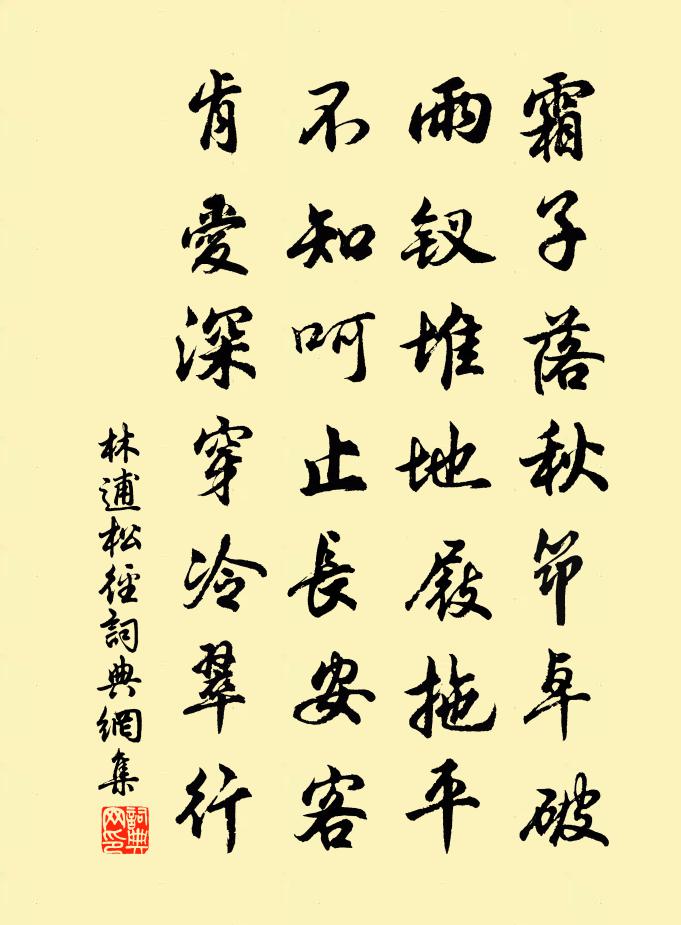 霜子落秋筇卓破
雨釵堆地屐拖平
不知呵止長安客
肯愛深穿冷翠行
林逋松徑詞典網集
詞典网印